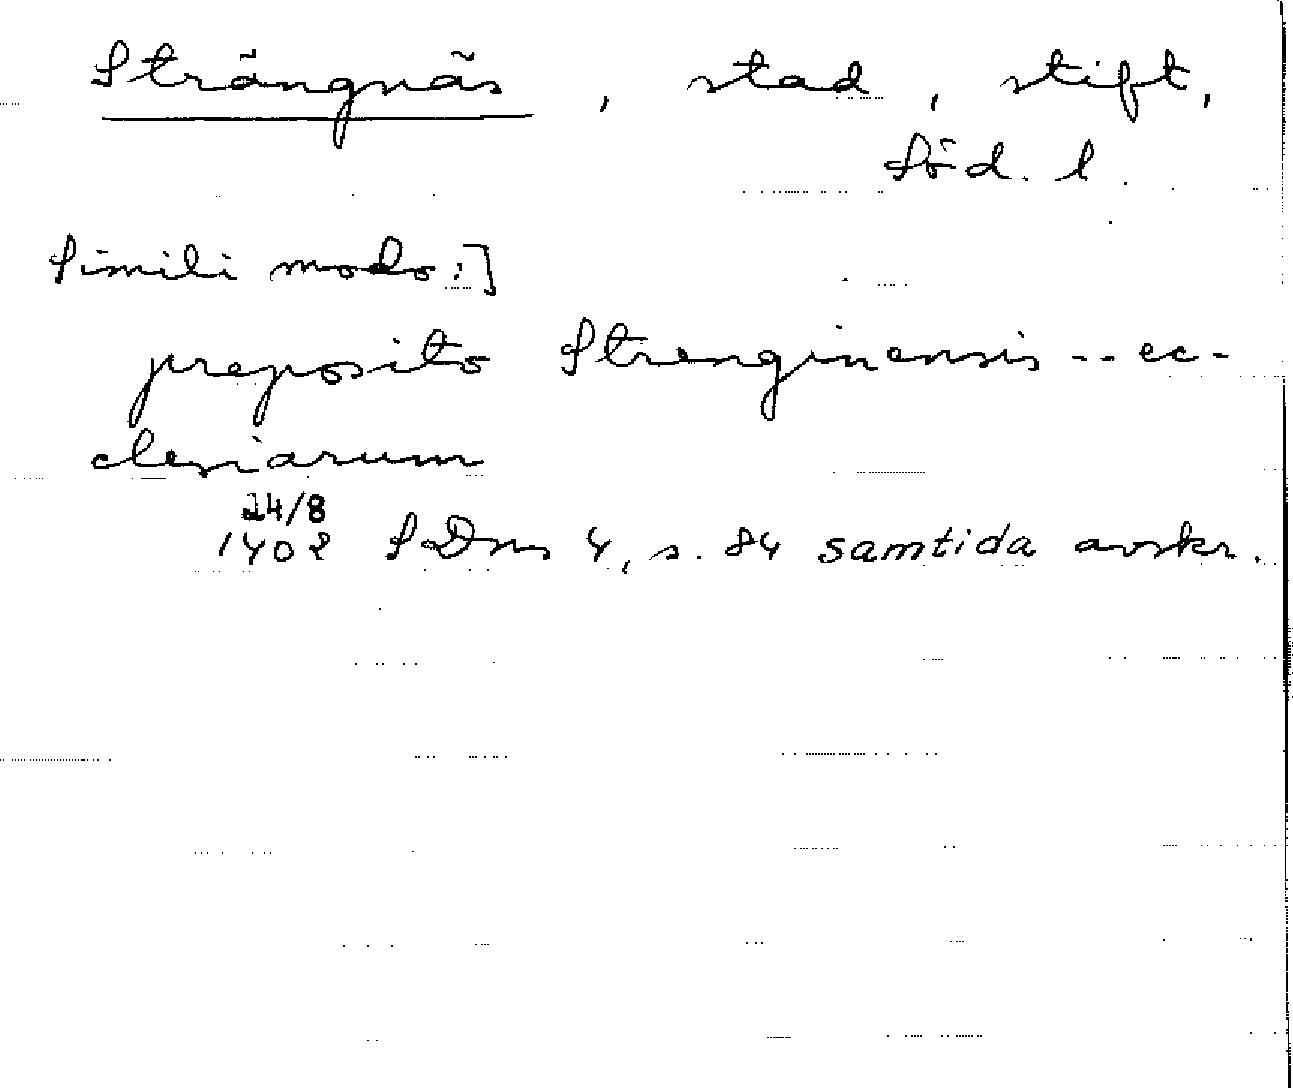 Strängnäs, stad, stift,
Söd. l.
Simili modo:]
preposito Strenginensis -- ec-
clesiarum
24/8
1402 SDns 4, s. 84 samtida avskr.